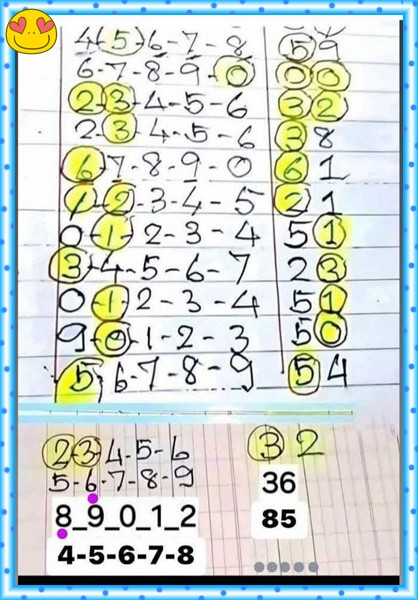 4-5-6-7-8 59
6-7-8-9-0 00
2-3-4-5-6 32
2-3-4-5-6 38
6-7-8-9-0 61
1-2-3-4-5 21
0-1-2-3-4 51
3-4-5-6-7 23
0-1-2-3-4 51
9-0-1-2-3 50
5-6-7-8-9 54
2-3-4-5-6 32
5-6-7-8-9 36
8_9_0_1_2 85
4-5-6-7-8